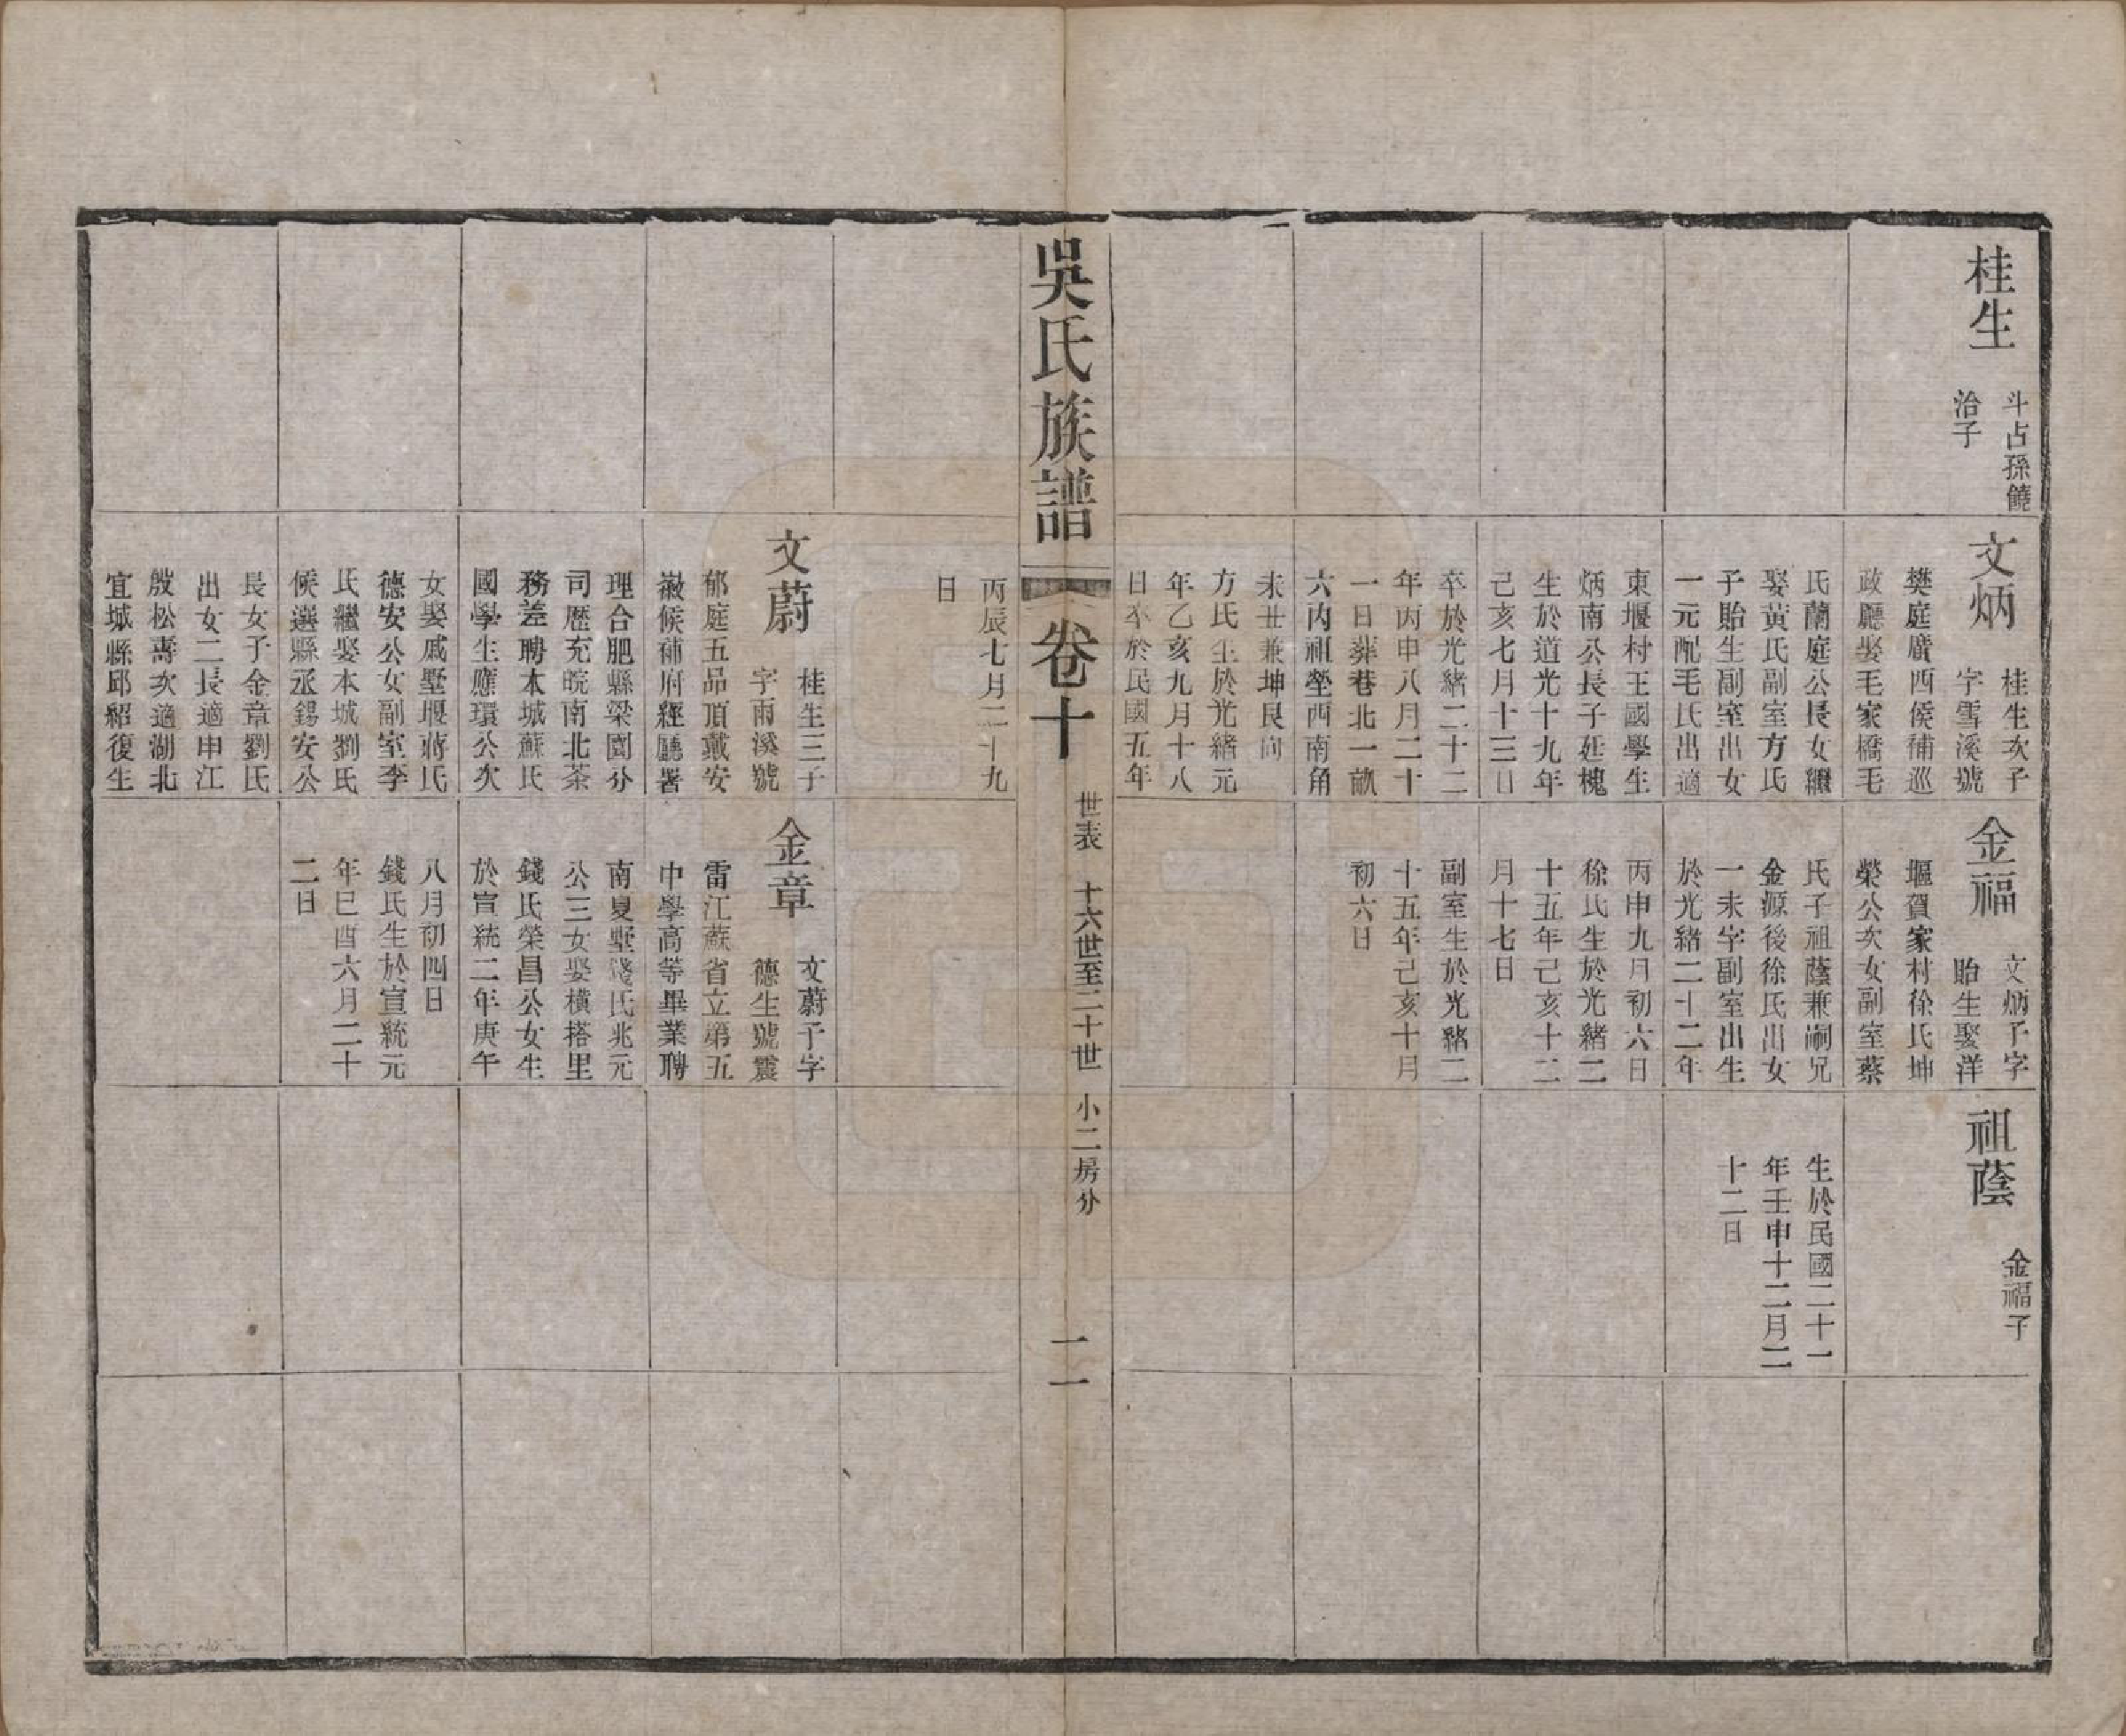 桂生
斗占孫饒
治子
文炳
桂生次子
字雪溪號
樊庭廣西候補巡
政廳娶毛家橋毛
氏蘭庭公長女繼
娶黃氏副室方氏
子貽生副室出女
一元配毛氏出適
東堰村王國學生
炳南公長子廷槐
生於道光十九年
己亥七月十三日
卒於光緒二十二
年丙申八月二十
一日葬巷北一畝
六丙祖塋西南角
未丑兼坤艮向
方氏生於光緒元
年乙亥九月十八
日卒於民國五年
丙辰七月二十九
日
金福
文炳子字
貽生娶洋
堰賀家村徐氏坤
榮公次女副室蔡
氏子祖蔭兼嗣兄
金源後徐氏出女
一未字副室出生
於光緒二十二年
丙申九月初六日
徐氏生於光緒二
十五年己亥十二
月十七日
副室生於光緒二
十五年己亥十月
初六日
祖蔭
金福子
生於民國二十一
年壬申十二月二
十二日
吳氏族譜
卷十
世表 十六世至二十世 小二房分
二
文蔚
桂生三子
字雨溪號
郁庭五品頂戴安
徽候補府經廳署
理合肥縣梁園分
司歷充皖南北茶
務差聘本城蘇氏
國學生應環公次
女娶戚墅堰蔣氏
德安公女副室李
氏繼娶本城劉氏
候選縣丞錫安公
長女子金章劉氏
出女二長適申江
殷松壽次適湖北
宜城縣邱紹復生
金章
文蔚子字
德生號震
雷江蘇省立第五
中學高等畢業聘
南夏墅錢氏兆元
公三女娶橫搭里
錢氏榮昌公女生
於宣統二年庚午
八月初四日
錢氏生於宣統元
年巳酉六月二十
二日